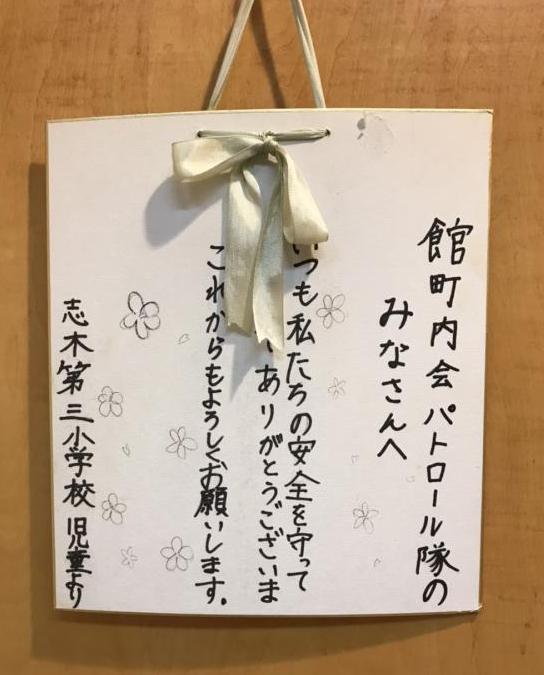 館町内会パトロール隊の
みなさんへ
いつも私たちの安全を守って
ありがとうございま
これからもよろしくお願いします。
志木第三小学校 児童より